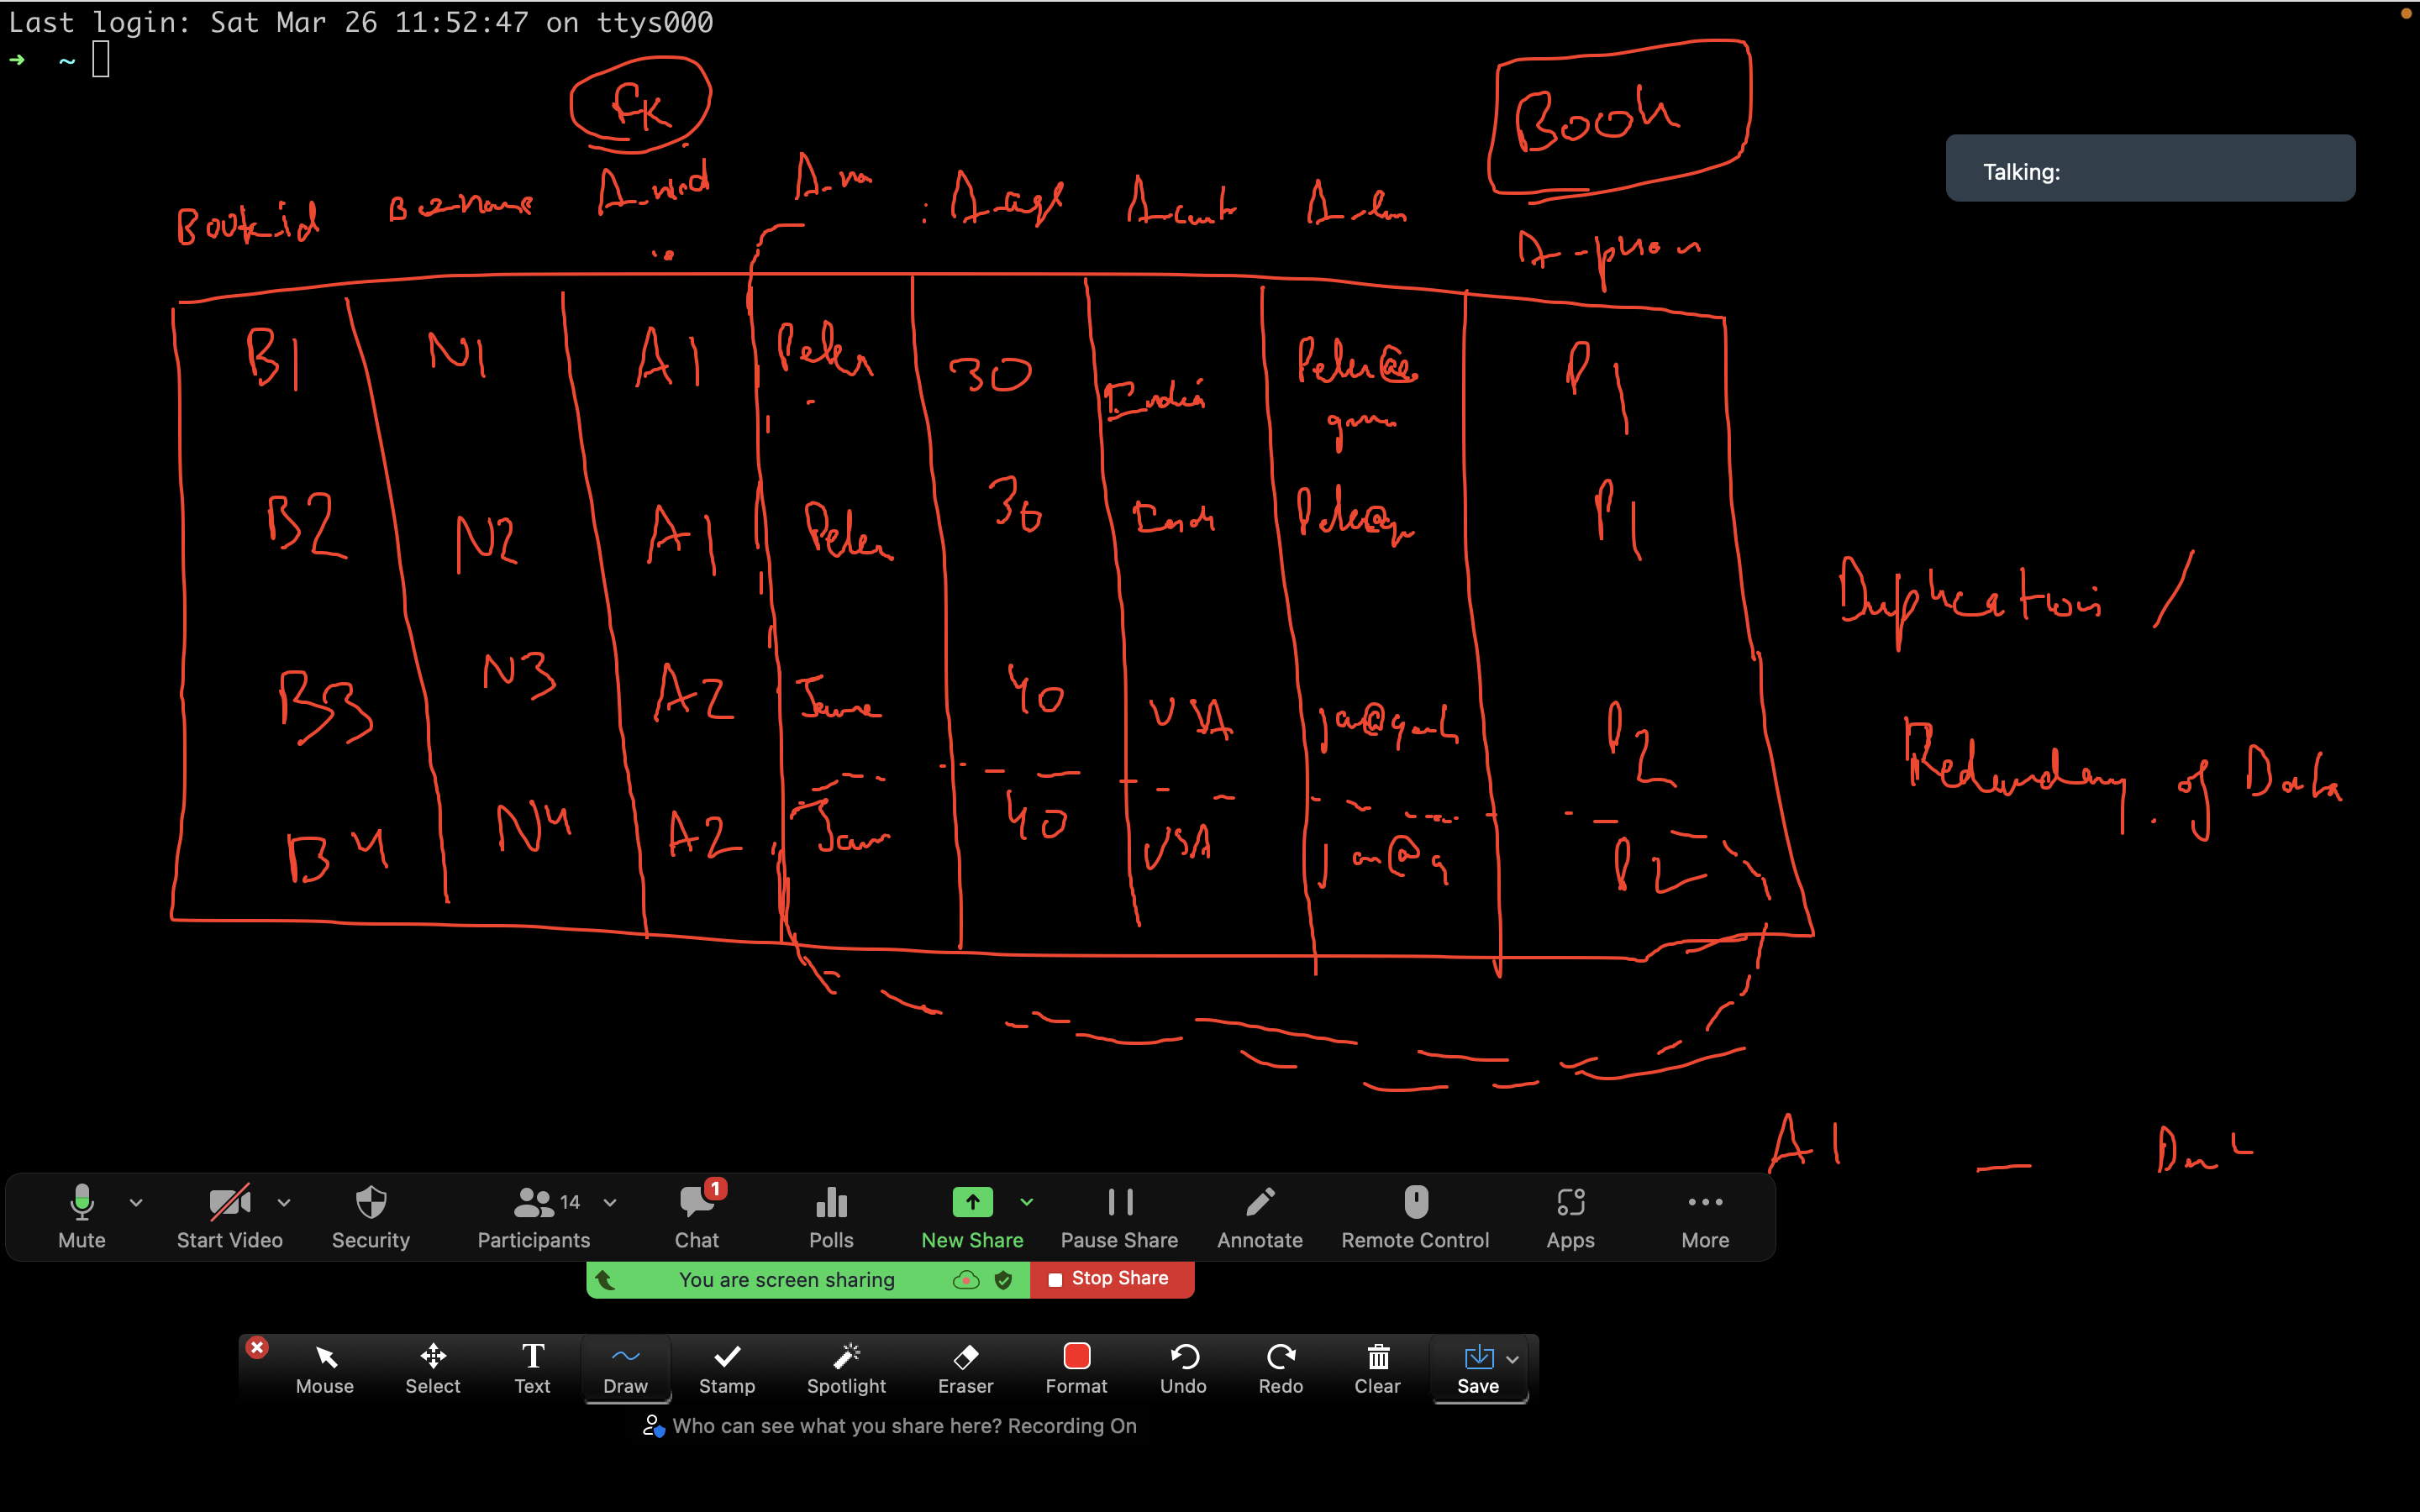 Last login: Sat Mar 26 11:52:47 on ttys000
➜ ~
FK
Book
Talking:
Book-id A-age A-phon
B1 N1 A1 Peter 30 India Peter@
B2 N2 A1 Peter 30 P1
B3 N3 A2 40 USA P2
B4 N4 A2 40 USA P2
P1
Duplication /
Redundancy of Data
A1 —
Mute Start Video Security Participants 14 Chat 1 Polls New Share Pause Share Annotate Remote Control Apps More
You are screen sharing Stop Share
Mouse Select Text Draw Stamp Spotlight Eraser Format Undo Redo Clear Save
Who can see what you share here? Recording On